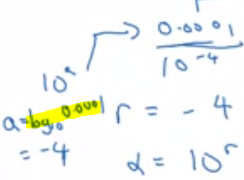 0.0001
10^-4
10^r
a = log₁₀ 0.0001 r = -4
= -4 α = 10^r